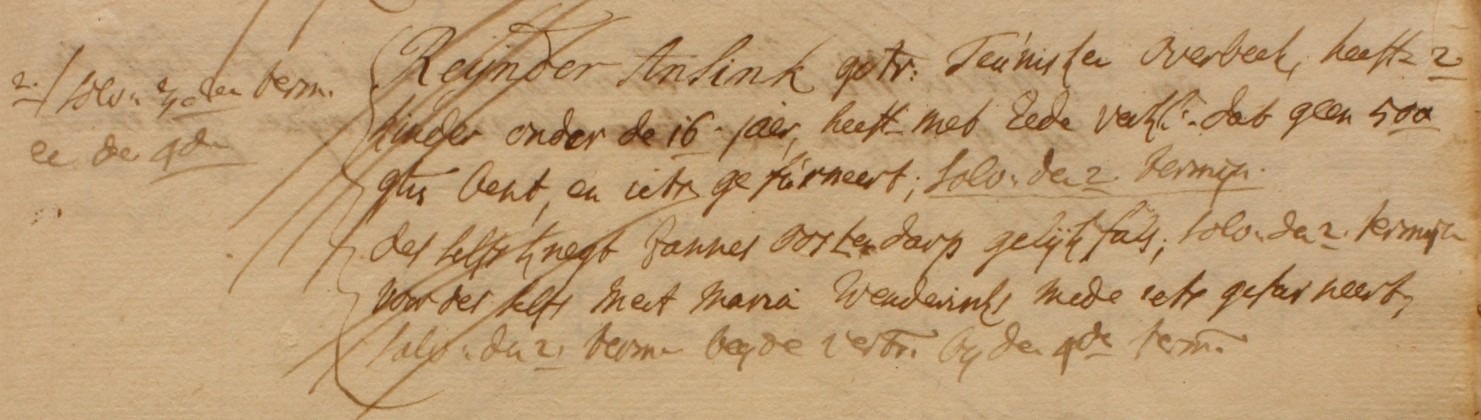 2. / solv: 3 den term.
ee de 4de
Reijnder Ansink getr: Teunisken Overbeek, heeft 2
kinder onder de 16 jaer, heeft met Eede verkl: dat geen 500
gls bent, en iets gefurneert, solv: den 2 termijn.
des selfs knegt Jannes Oostendarp gelijkfals, solv: den 2 termijn
voor des selfs meit Maria Wenderinks mede iets gefurneert,
solv: den 2 term beyde vertr: by den 4de term: